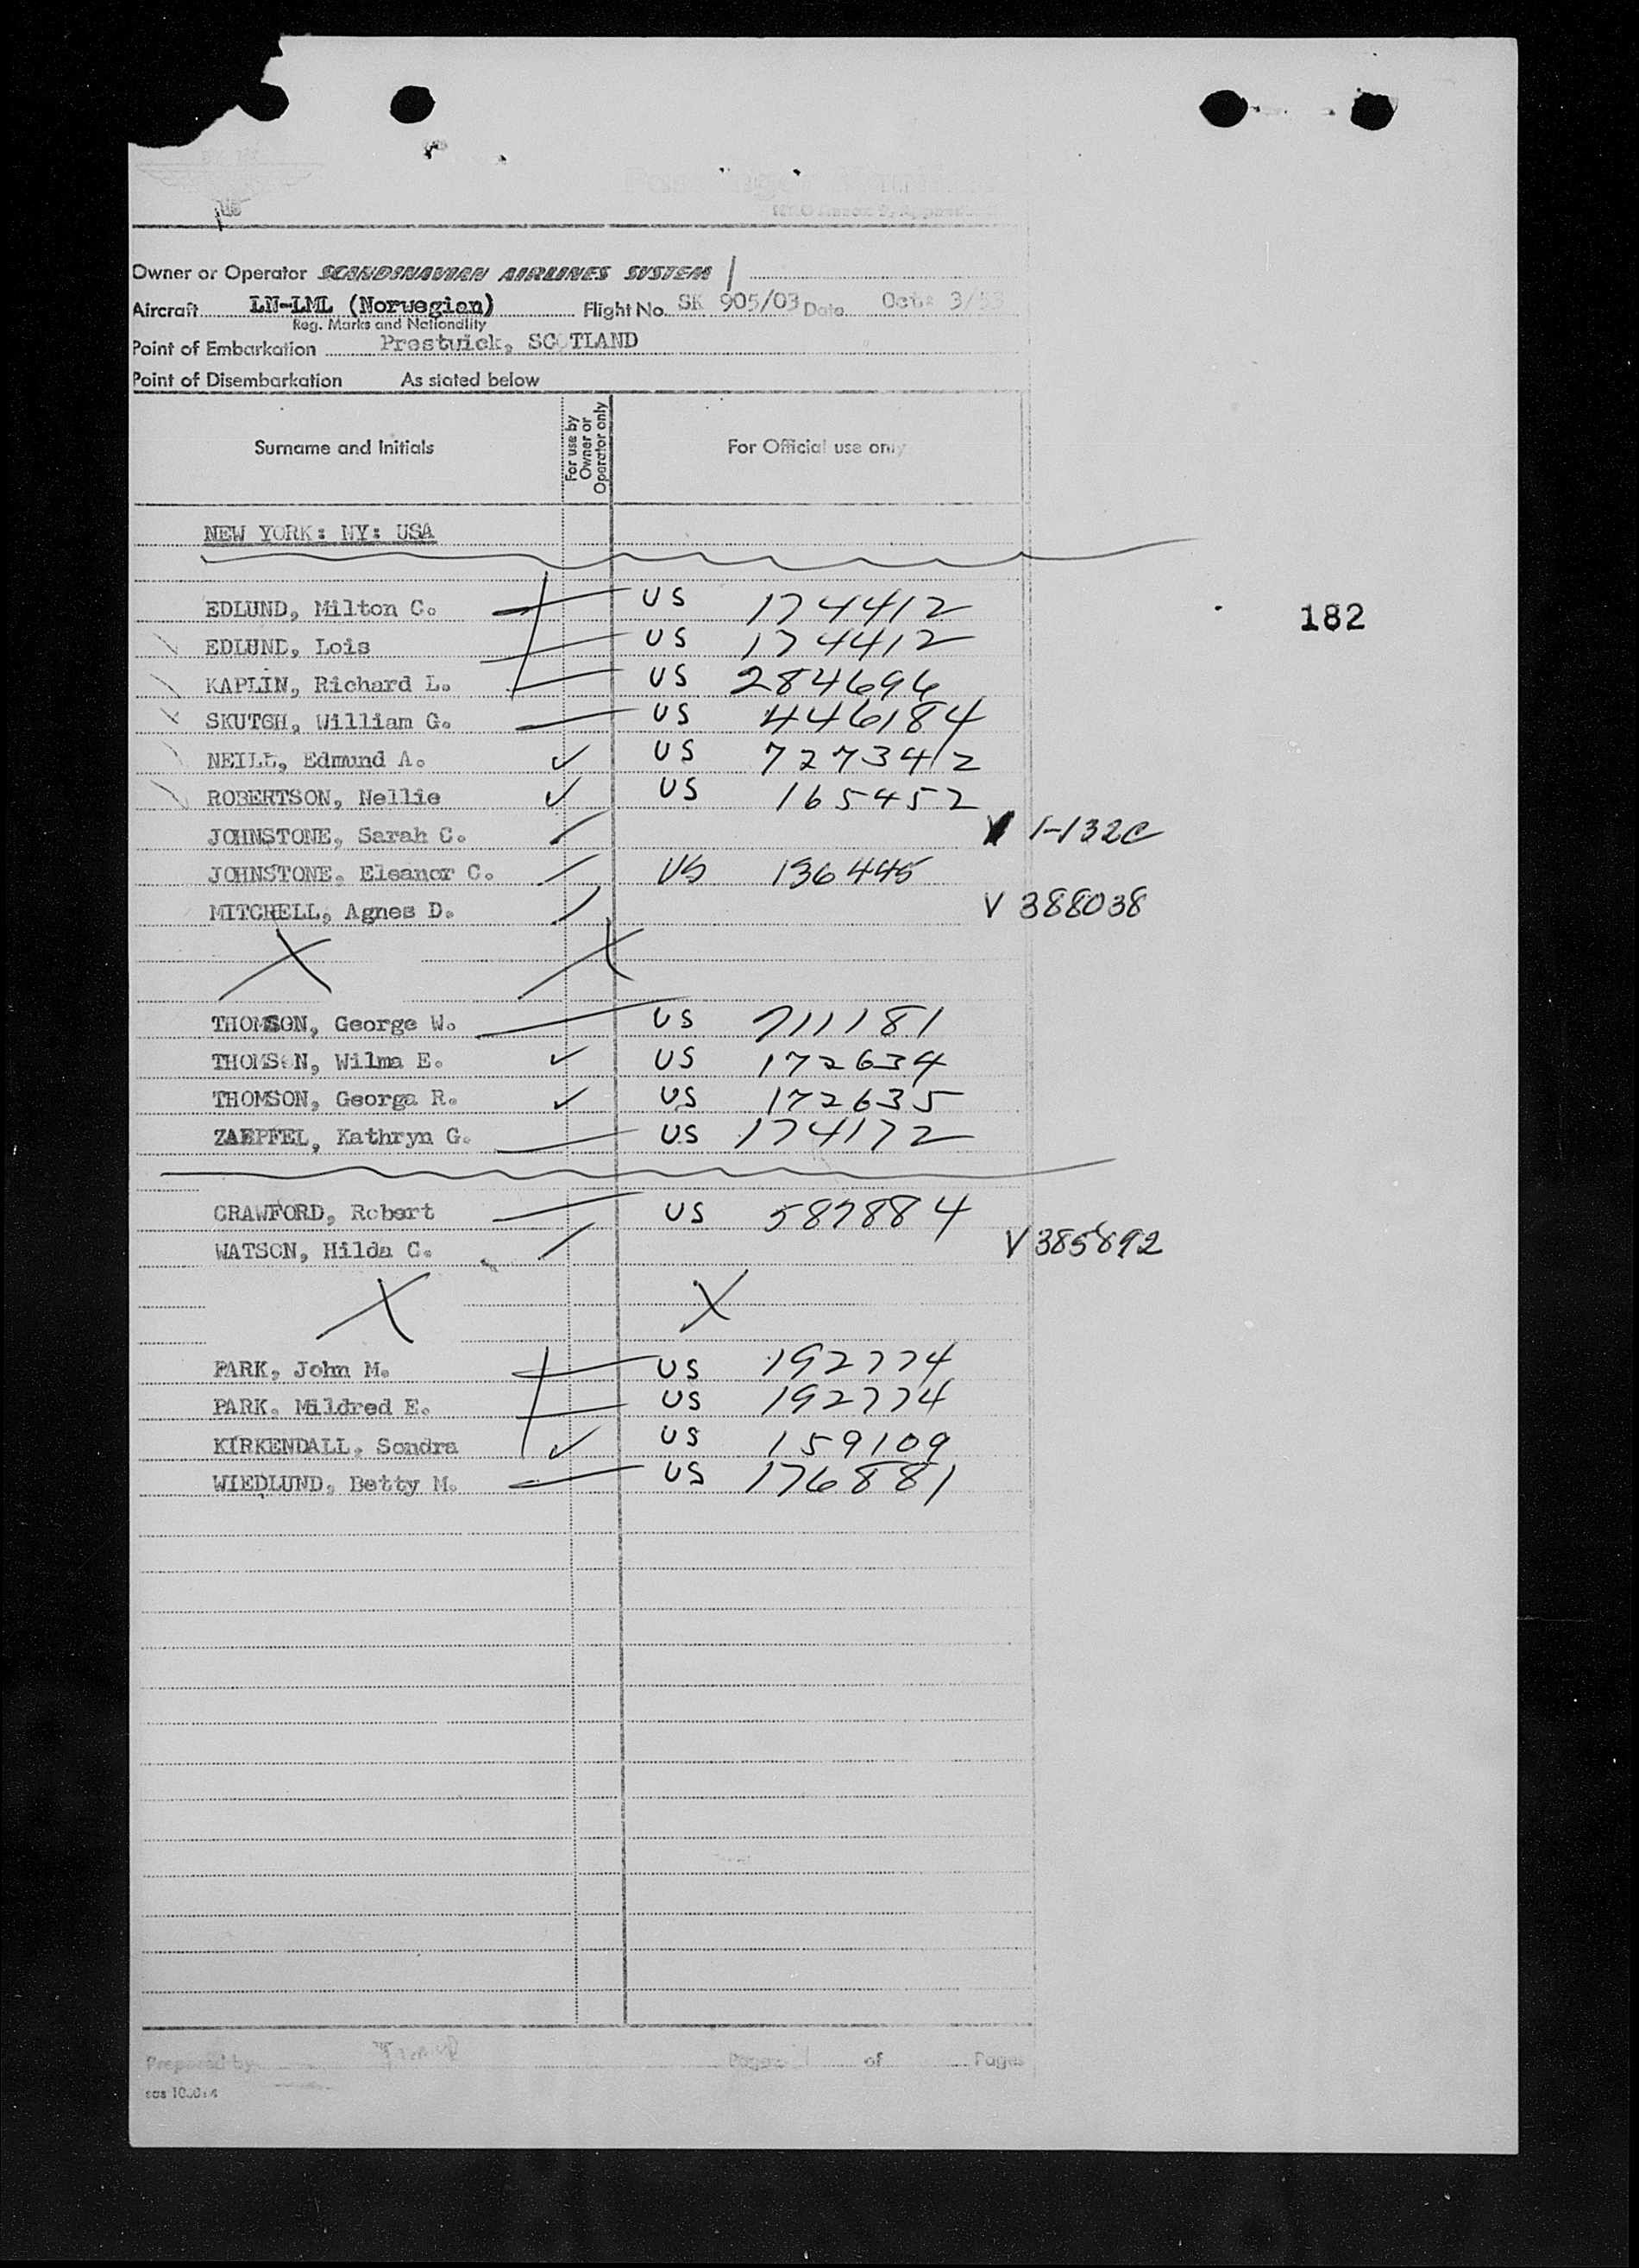 Owner or Operator SCANDINAVIAN AIRLINES SYSTEM
Aircraft LN-LML (Norwegian) Flight No. SK 905/03 Date Oct: 3/53
Reg. Marks and Nationality
Point of Embarkation Prestwick, SCOTLAND
Point of Disembarkation As stated below
Surname and Initials For use by Owner or Operator only For Official use only
NEW YORK: NY: USA
EDLUND, Milton C. US 174412
182
EDLUND, Lois US 174412
KAPLIN, Richard L. US 284696
SKUTCH, William G. US 446184
NEILL, Edmund A. ✓ US 727342
ROBERTSON, Nellie ✓ US 165452
JOHNSTONE, Sarah C. 1-132C
JOHNSTONE. Eleanor C. US 136445
MITCHELL, Agnes D. V 388038
X X
THOMSON, George W. US 711181
THOMSON, Wilma E. ✓ US 172634
THOMSON, Georga R. ✓ US 172635
ZAEPFEL, Kathryn G. US 174172
CRAWFORD, Robert US 587884
WATSON, Hilda C. V 385892
X X
PARK, John M. US 192774
PARK. Mildred E. US 192774
KIRKENDALL, Sondra ✓ US 159109
WIEDLUND, Betty M. US 176881
Prepared by Pages of Pages